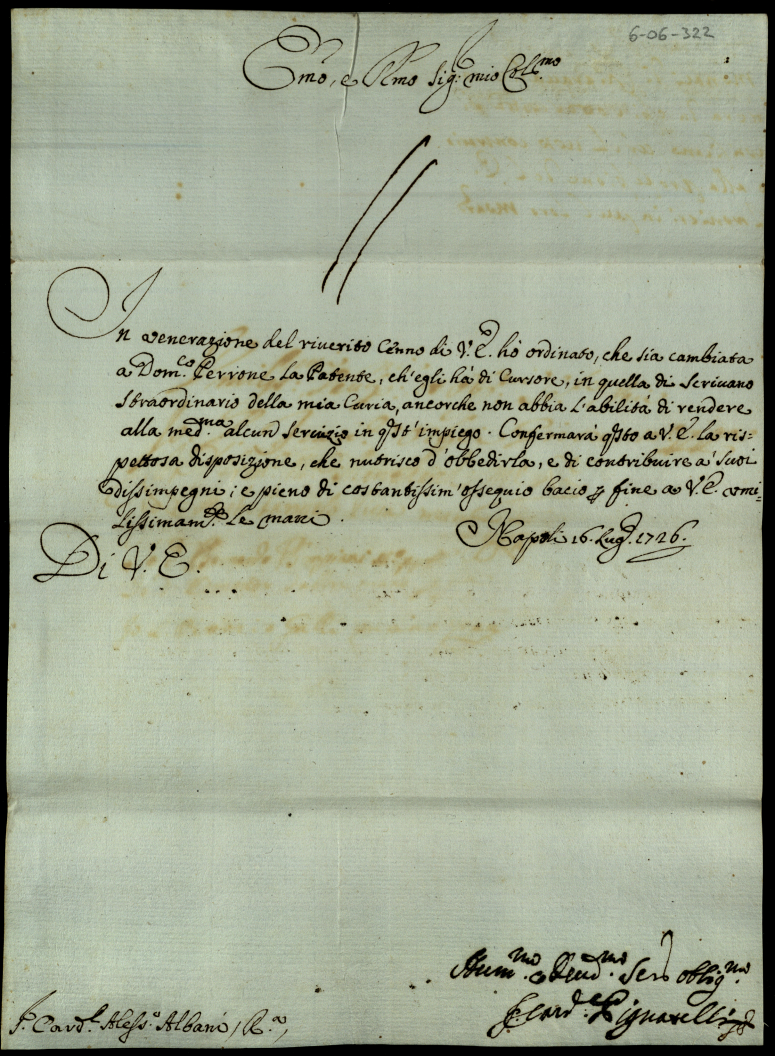 6-06-322
Emo, e Rmo Sig: mio Coll.mo
In venerazione del riverito Cenno di V. E. hò ordinato, che sia cambiata
a Dom.co Perrone la Patente, ch'egli hà di Cursore, in quella di Scrivano
straordinario della mia Curia, ancorche non abbia l'abilitá di rendere
alla med.ma alcun servizio in qst'impiego. Confermará qsto a V. E. la ris-
pettosa disposizione, che nutrisco d'obbedirla, e di contribuire a' suoi
dissimpegni; e pieno di costantissim'ossequio bacio p fine a V. E. umi-
lissimam.te le mani.
Napoli 16. Lug.o 1726.
Di V. E.
Hum.mo e Deud.mo Ser oblig.mo
F. Card.e Pignatelli
S. Card.l Aless.o Albani, R.a,